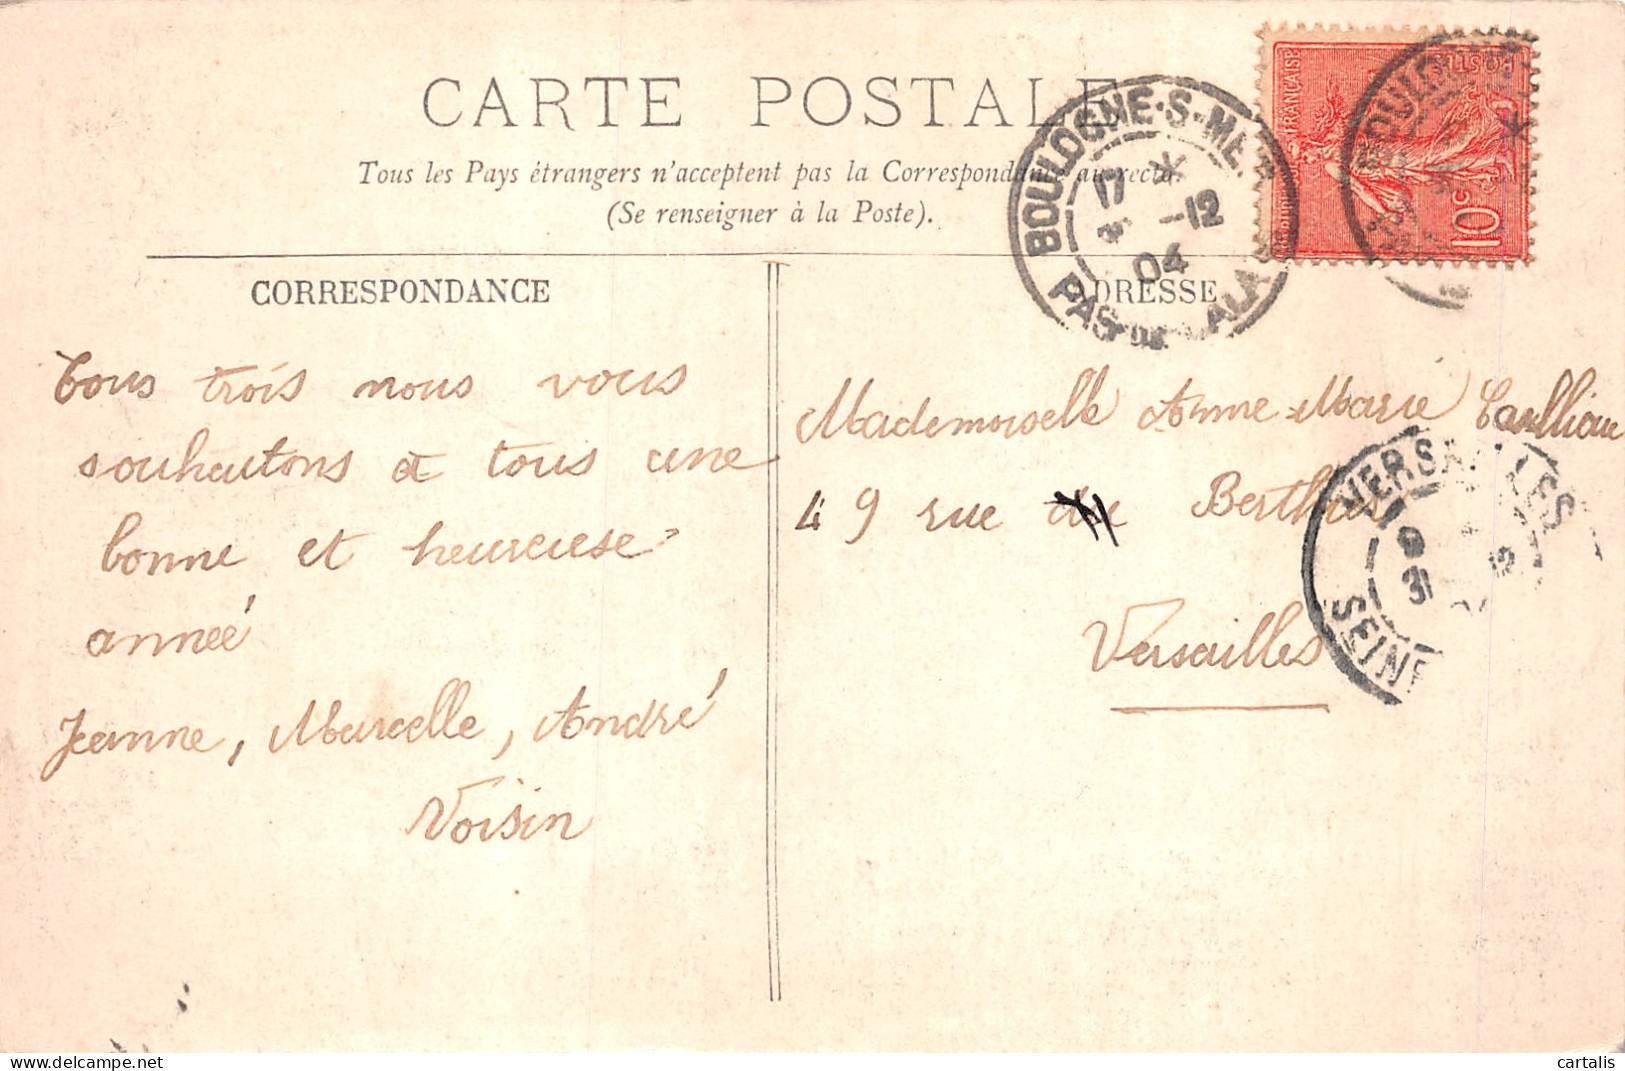 CARTE POSTALE
Tous les Pays étrangers n'acceptent pas la Correspondance au recto.
(Se renseigner à la Poste).
BOULOGNE-S-MER
17
-12
04
PAS-DE-CALAIS
FRANÇAISE
POSTES
10c
CORRESPONDANCE
ADRESSE
Tous trois nous vous
souhaitons à tous une
bonne et heureuse
année
Jeanne, Marcelle, André
Voisin
Mademoiselle Anne-Marie
49 rue Berthier
Versailles
VERSAILLES
9
31
SEINE
cartalis